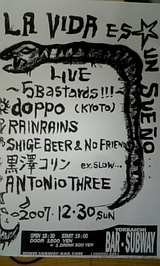 LA VIDA ES UN SUEÑO
LIVE
～5Bastards!!!～
doppo (KYOTO)
RAINRAINS
SHIGE BEER & NO FRIENDS
黒澤コリン ex.SLOW...
ANTONIO THREE
2007.12.30.SUN
OPEN 18:30 START 19:00
DOOR 1500 YEN
+ 1 DRINK 500 YEN
YOKKAICHI
BAR・SUBWAY
WWW.SUBWAY-BAR.COM